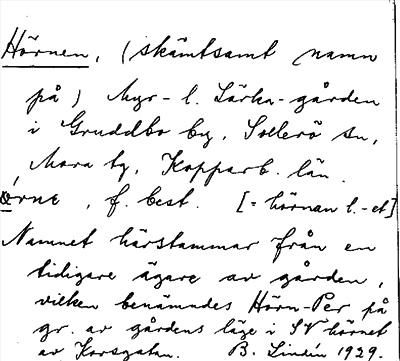 Hörnen, (skämtsamt namn
på) Myr- l. Lärka-gården
i Gruddbo by, Sollerö sn,
Mora tg, Kopparb. län.
örne, f. best. [= hörnan l. -et]
Namnet härstammar från en
tidigare ägare av gården,
vilken benämndes Hörn-Per på
gr. av gårdens läge i SV hörnet
av Korsgatan. B. Lindén 1929.